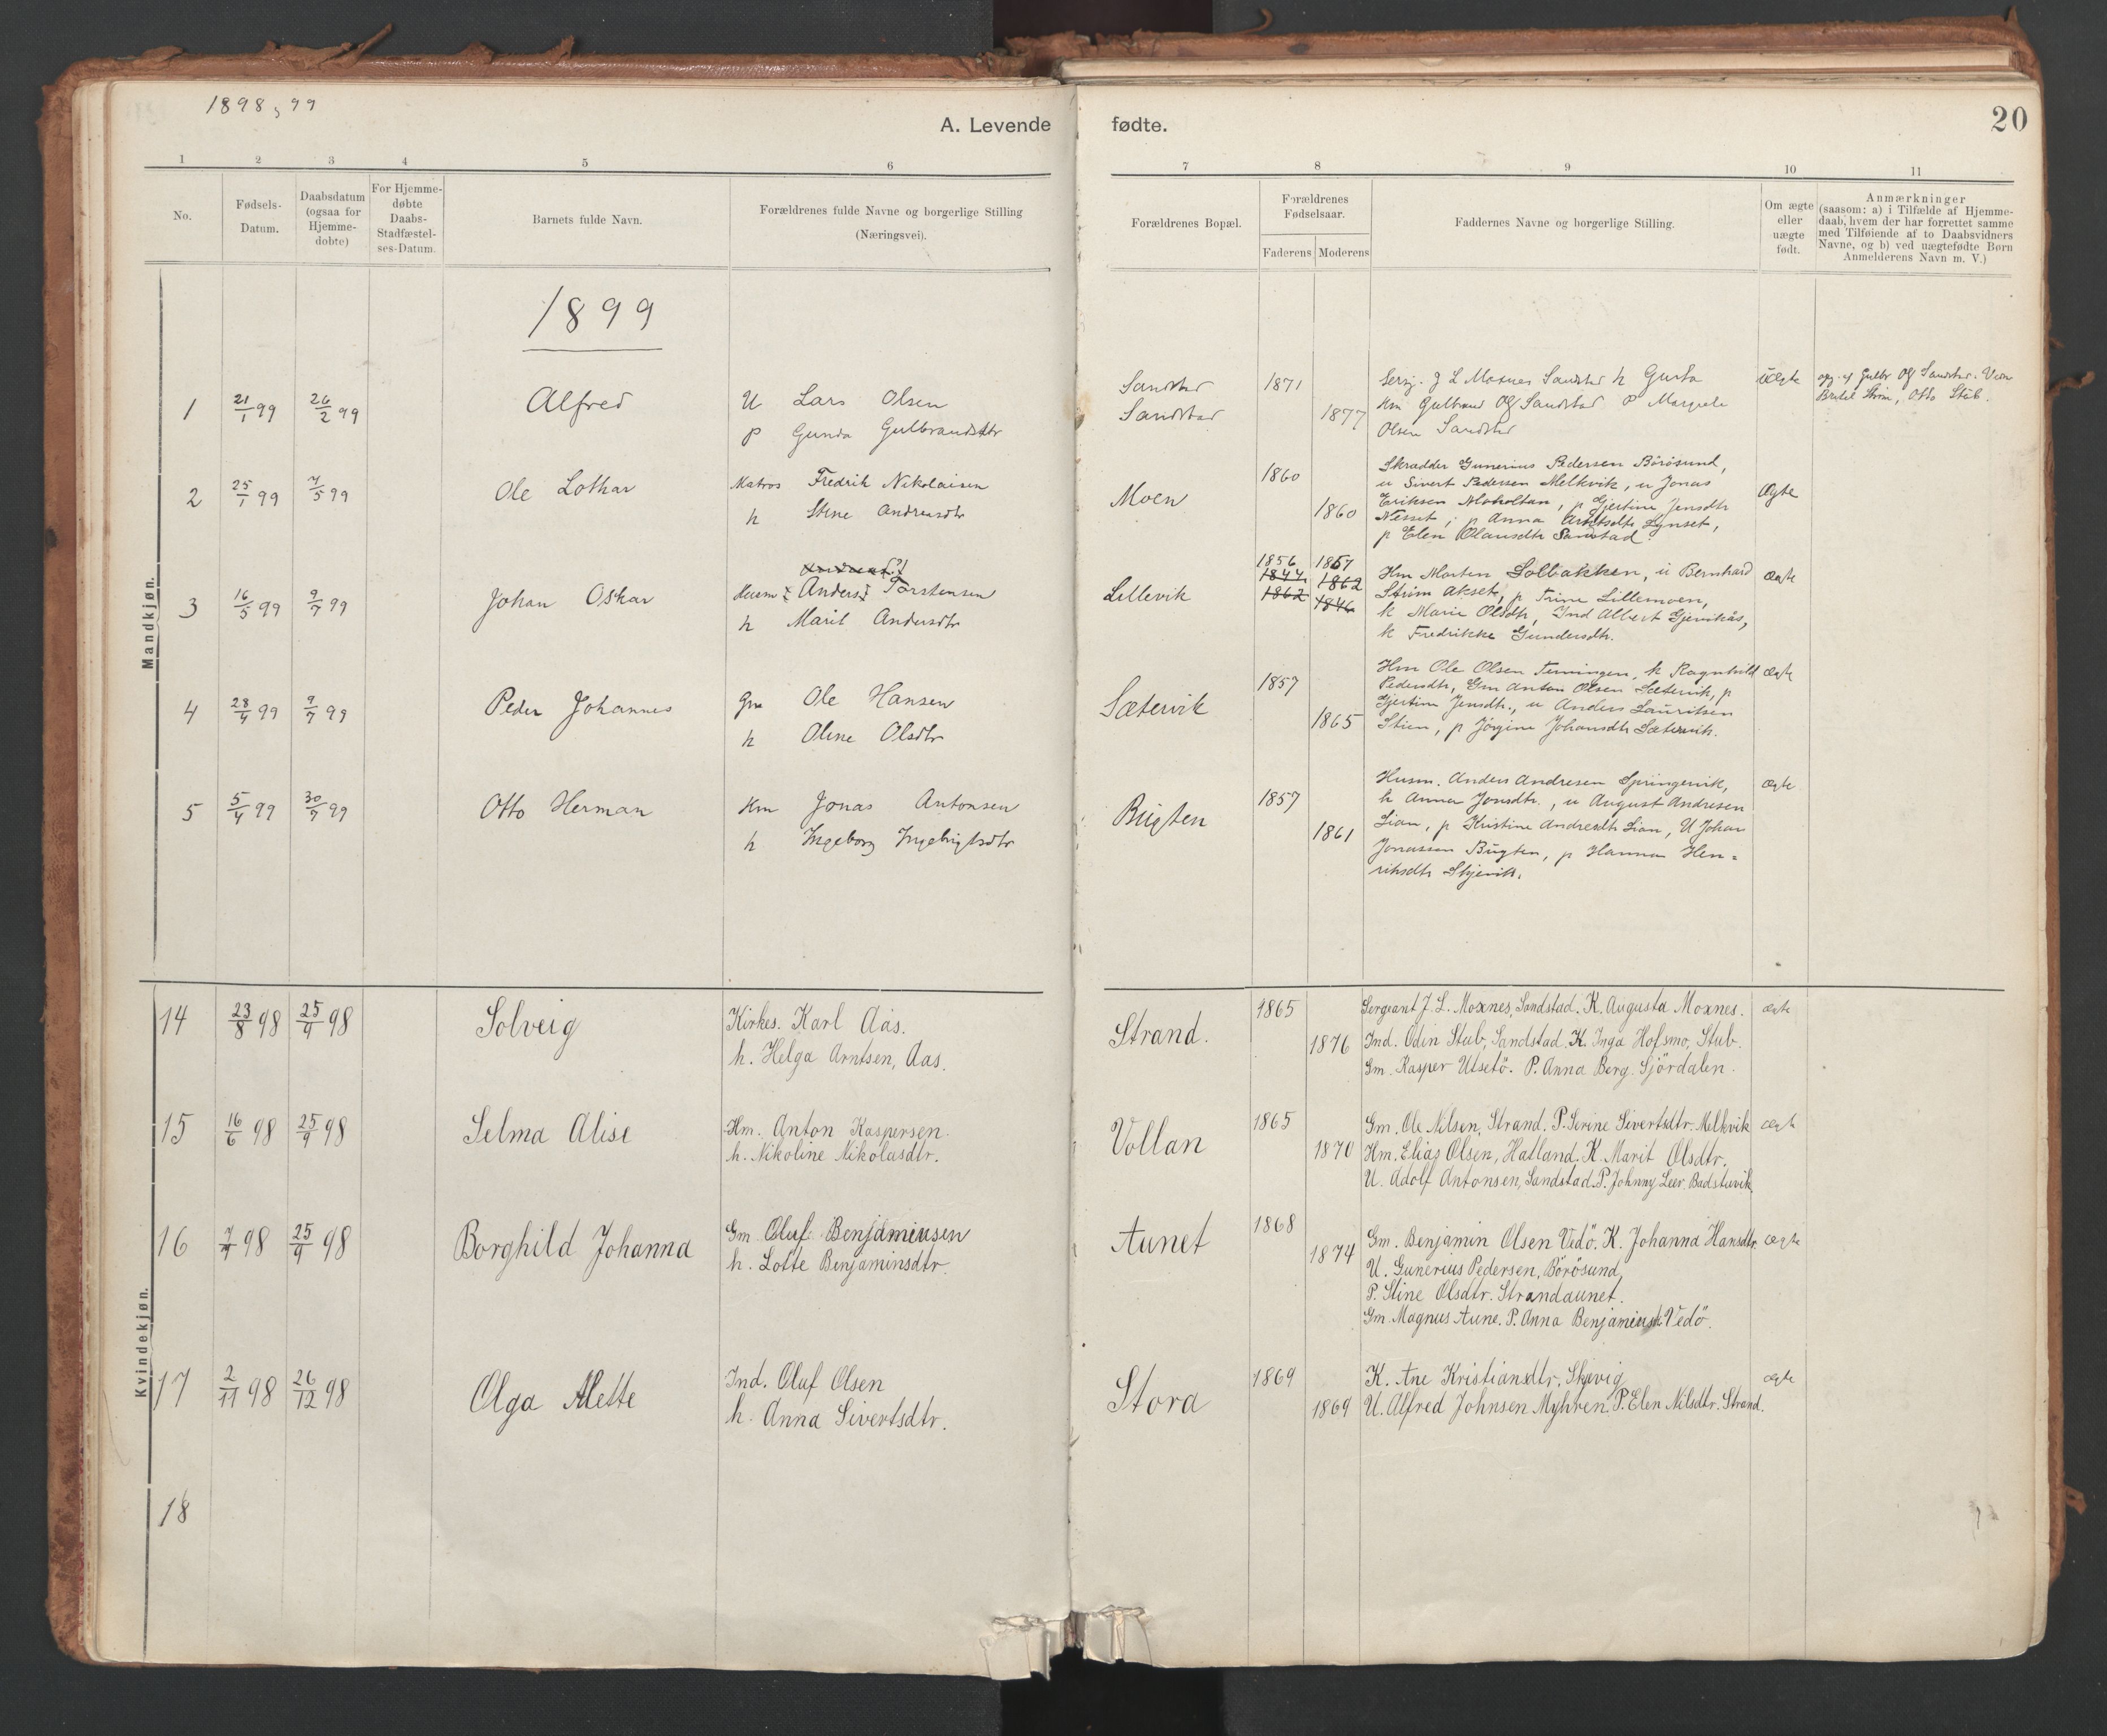 1898, 99
A. Levende fødte.
20
1 2 3 4 5 6 7 8 9 10 11
No.
Fødsels-
Datum.
Daabsdatum
(ogsaa for
Hjemme-
døbte)
For Hjemme-
døbte
Daabs-
Stadfæstel-
ses-Datum.
Barnets fulde Navn.
Forældrenes fulde Navne og borgerlige Stilling
(Næringsvei).
Forældrenes Bopæl.
Forældrenes
Fødselsaar.
Faderens Moderens
Faddernes Navne og borgerlige Stilling.
Om ægte
eller
uægte
født.
Anmærkninger
(saasom: a) i Tilfælde af Hjemme-
daab, hvem der har forrettet samme
med Tilføiende af to Daabsvidners
Navne, og b) ved uægtefødte Børn
Anmelderens Navn m. V.)
Mandkjøn.
1899
1 21/1 99 26/2 99 Alfred
U Lars Olsen
p Gunda Gulbrandsdtr
Sandstad
Sandstad
1871
1877
Serg. J L Moxnes Sandstad k Gusta
Km Gulbrand Olsen Sandstad P Margrete
Olsen Sandstad
uægte
opg. af Gulbr Sandstad. Vidn
Otto Stub.
2 25/1 99 7/5 99 Ole Lothar
Matros Fredrik Nikolaisen
h Stine Andreasdtr
Moen
1860
1860
Skrædder Gunerius Pedersen Börösund,
u Sivert Pedersen Melkvik, u Jonas
Eriksen Moholtan, p Gjertine Jensdtr
Nesset, p Anna Arntsdtr Lynset,
p Elen Olausdtr Sandstad.
Ægte
3 16/5 99 9/7 99 Johan Oskar
Husm Anders Torstensen
h Marit Andersdtr
Lillevik
1856 1857
1844 1862
1862 1846
Hm Morten Solbakken, u Bernhard
Strøm Akset, p Trine Lillemoen,
k Marie Olsdtr, Ind Albert Gjevikås,
k Fredrikke Gundersdtr.
ægte
4 28/4 99 9/7 99 Peder Johannes
Gm Ole Hansen
h Oline Olsdtr
Sætervik
1857
1865
Hm Ole Olsen Tenningen, k Ragnhild
Pedersdtr, Gm Anton Olsen Sætervik, p
Gjertine Jensdtr., u Anders Lauritsen
Stien, p Jörgine Johansdtr Sætervik.
ægte
5 5/4 99 30/7 99 Otto Herman
Hm Jonas Antonsen
h Ingeborg Ingebrigtsdtr
Bugten
1857
1861
Husm. Anders Andresen Springervik,
k Anna Jonsdtr., u August Andresen
Lian, p Kristine Andresdtr Lian, U Johan
Jonassen Bugten, p Hanna Hen=
riksdtr Skjevik.
ægte
Kvindekjøn.
14 23/8 98 25/9 98 Solveig
Kirkes. Karl Aas.
h. Helga Arntsen, Aas.
Strand.
1865
1876
Sergeant J. L. Moxnes, Sandstad. K. Augusta Moxnes.
Ind. Odin Stub, Sandstad. K. Inga Hofsmo, Stub.
Gm. Kasper Utsetö. P. Anna Berg. Sjördalen.
ægte
15 16/6 98 25/9 98 Selma Alise
Hm. Anton Kaspersen.
h. Nikoline Nikolasdtr.
Vollan
1865
1870
Gm. Ole Nilsen, Strand. P. Serine Sivertsdtr. Melkvik
Hm. Elias Olsen, Hatland. K. Marit Olsdtr.
U. Adolf Antonsen, Sandstad. P. Johnny Leer, Badstuvik.
ægte
16 7/7 98 25/9 98 Borghild Johanna
Gm Oluf Benjaminsen
h. Lotte Benjaminsdtr.
Aunet
1868
1874
Gm. Benjamin Olsen Vedö. K. Johanna Hansdtr.
U. Gunerius Pedersen, Börösund,
P. Stine Olsdtr. Strandaunet.
Gm. Magnus Aune. P. Anna Benjaminsdtr Vedö.
ægte
17 2/11 98 26/12 98 Olga Alette
Ind. Oluf Olsen
h. Anna Sivertsdtr.
Stora
1869
1869
K. Ane Kristiansdtr, Skjevig
U. Alfred Johnsen Myhren. P. Elen Nilsdtr. Strand.
ægte
18